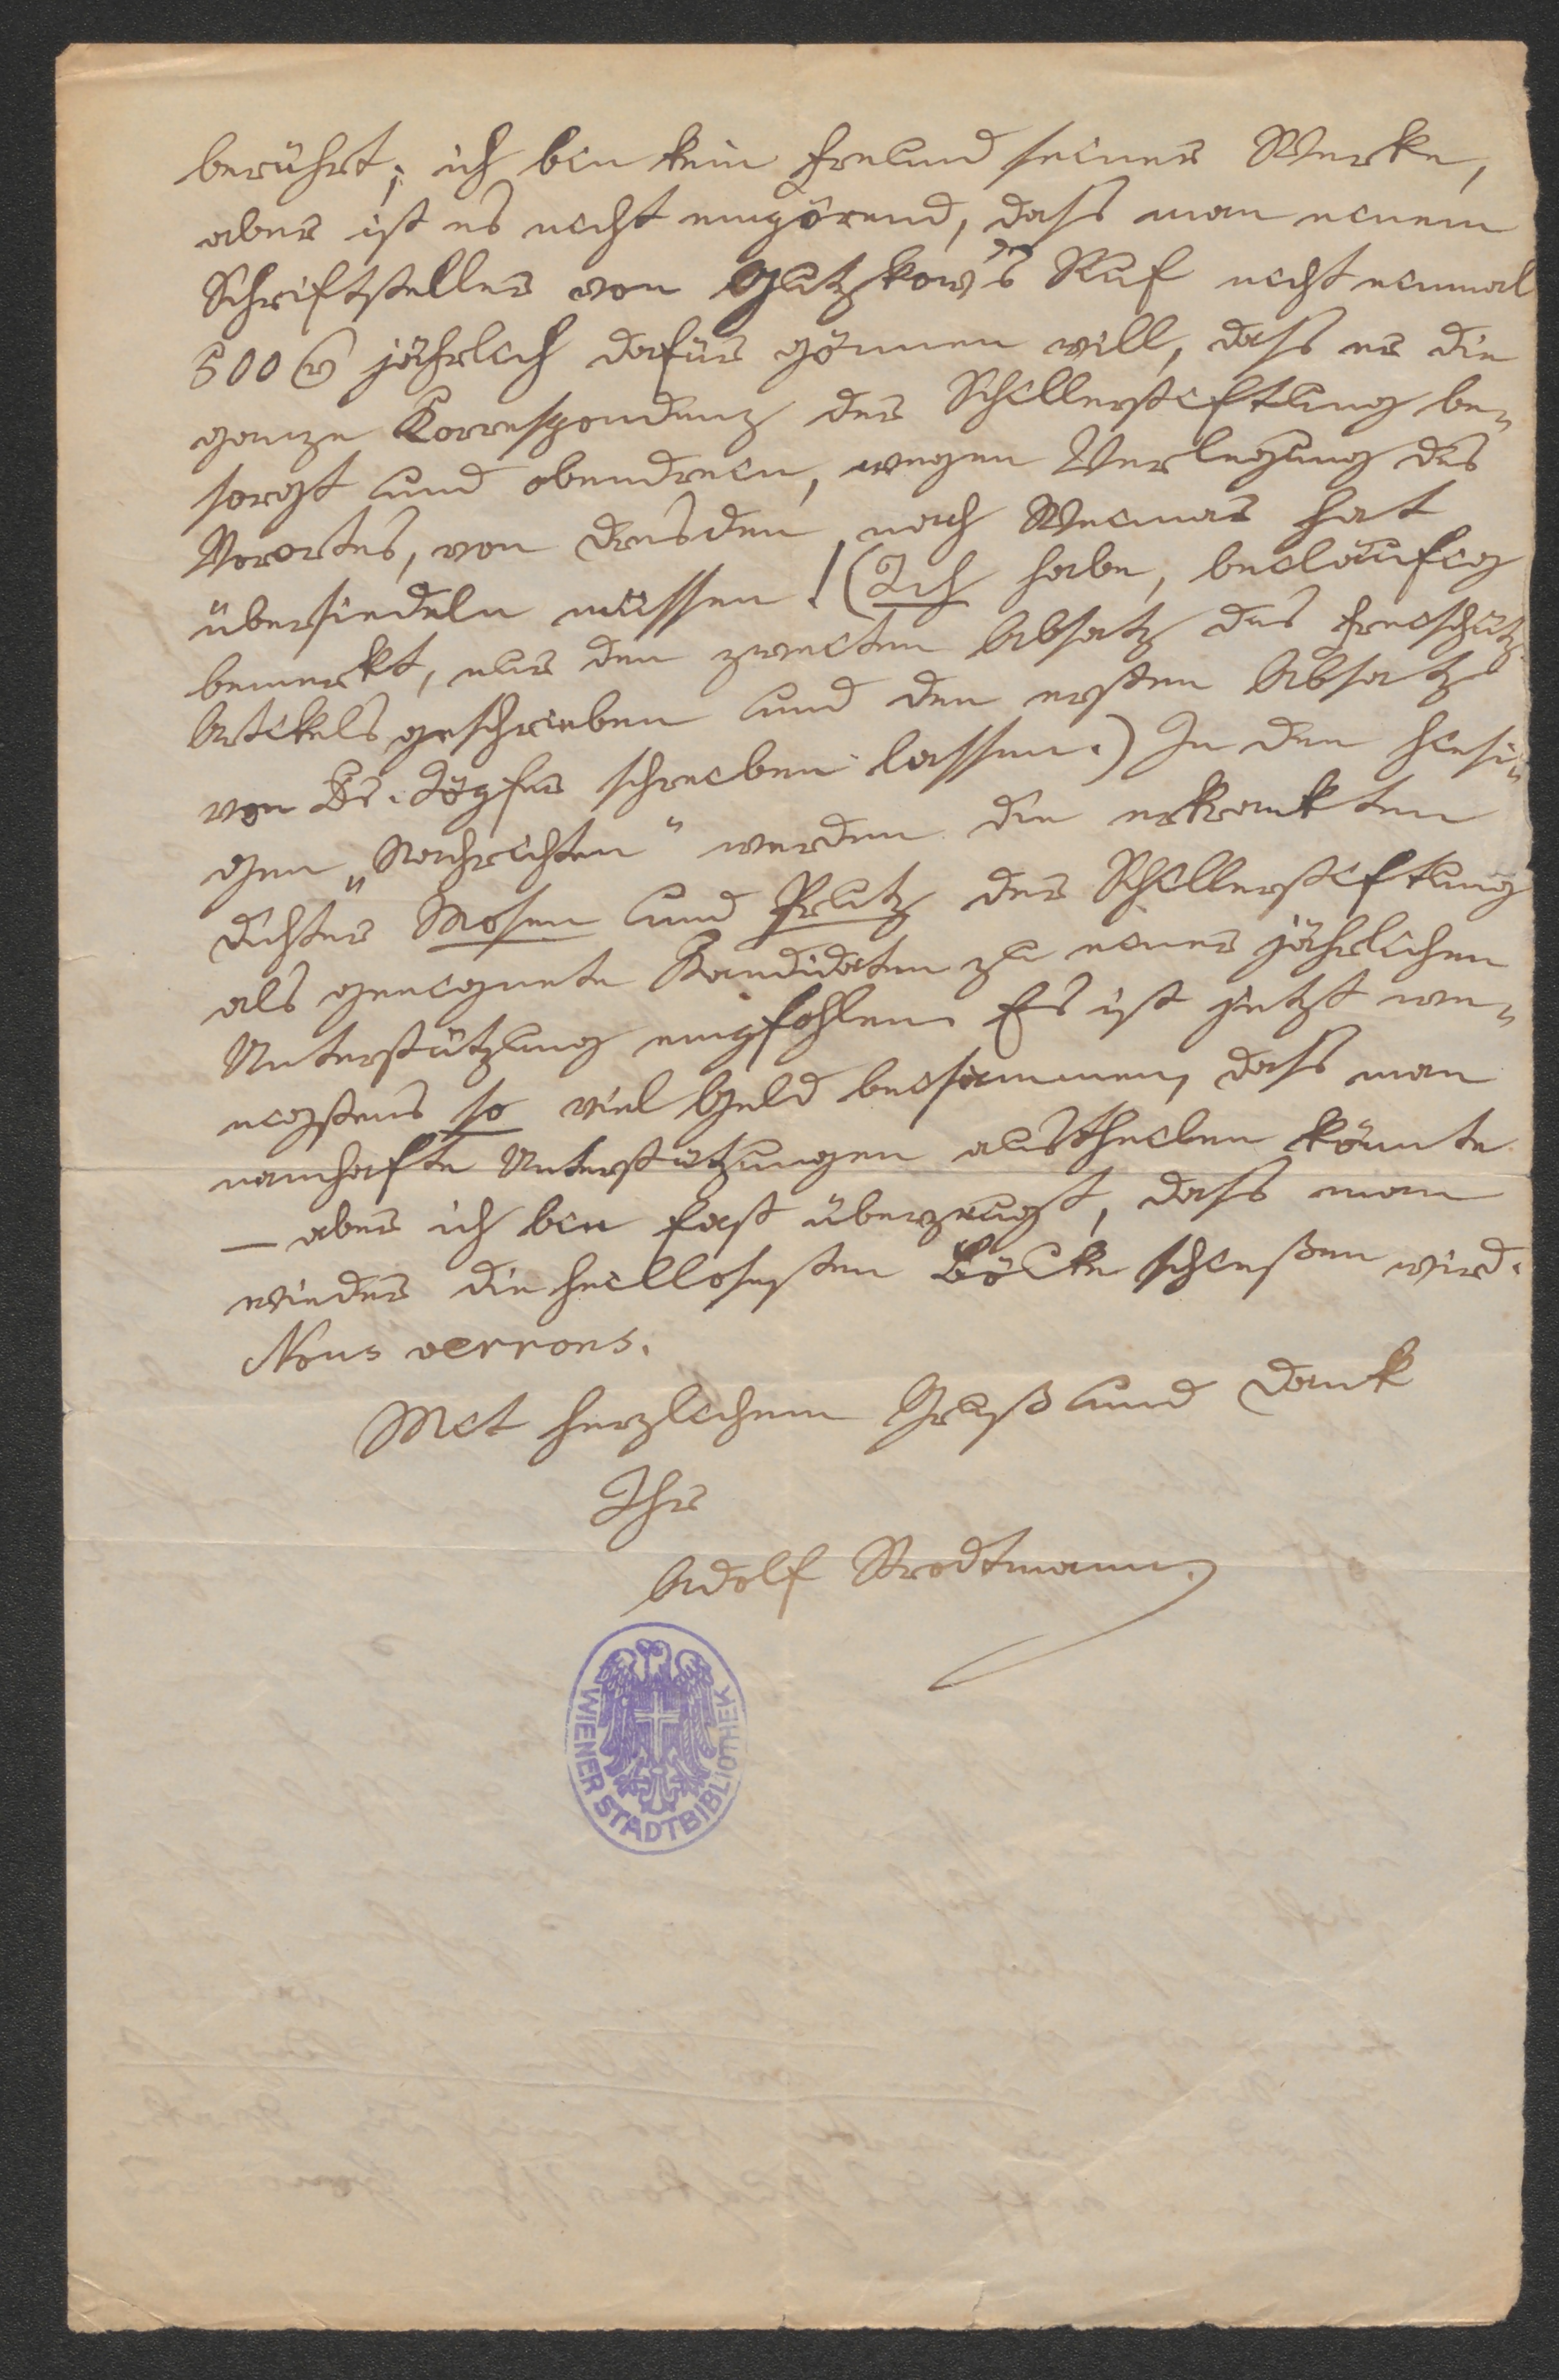 berührt; ich bin kein Freund seiner Werke,
aber ist es nicht empörend, dass man einem
Schriftsteller von Gutzkow's Ruf nicht einmal
500 jährlich dafür gönnen will, dass er die
ganze Korrespondenz der Schillerstiftung be-
sorgt und obendrein, wegen Verlegung des
Vorortes, von Dresden nach Weimar hat
übersiedeln müssen! (Ich habe, beiläufig
bemerkt, nur den zweiten Absatz des Freischütz
Artikels geschrieben und den ersten Absatz
von Dr. Töpfer schreiben lassen.) In den hiesi-
gen „Nachrichten" werden die erkrankten
Dichter Mosen und Prutz der Schillerstiftung
als geeignete Kandidaten zu einer jährlichen
Unterstützung empfohlen. Es ist jetzt we-
nigstens so viel Geld beisammen, dass man
namhafte Unterstützungen austheilen könnte
– aber ich bin fast überzeugt, dass man
wieder die heillosesten Böcke schießen wird.
Nous verrons.
Mit herzlichem Gruß und Dank
Ihr
Adolf Strodtmann.
WIENER STADTBIBLIOTHEK